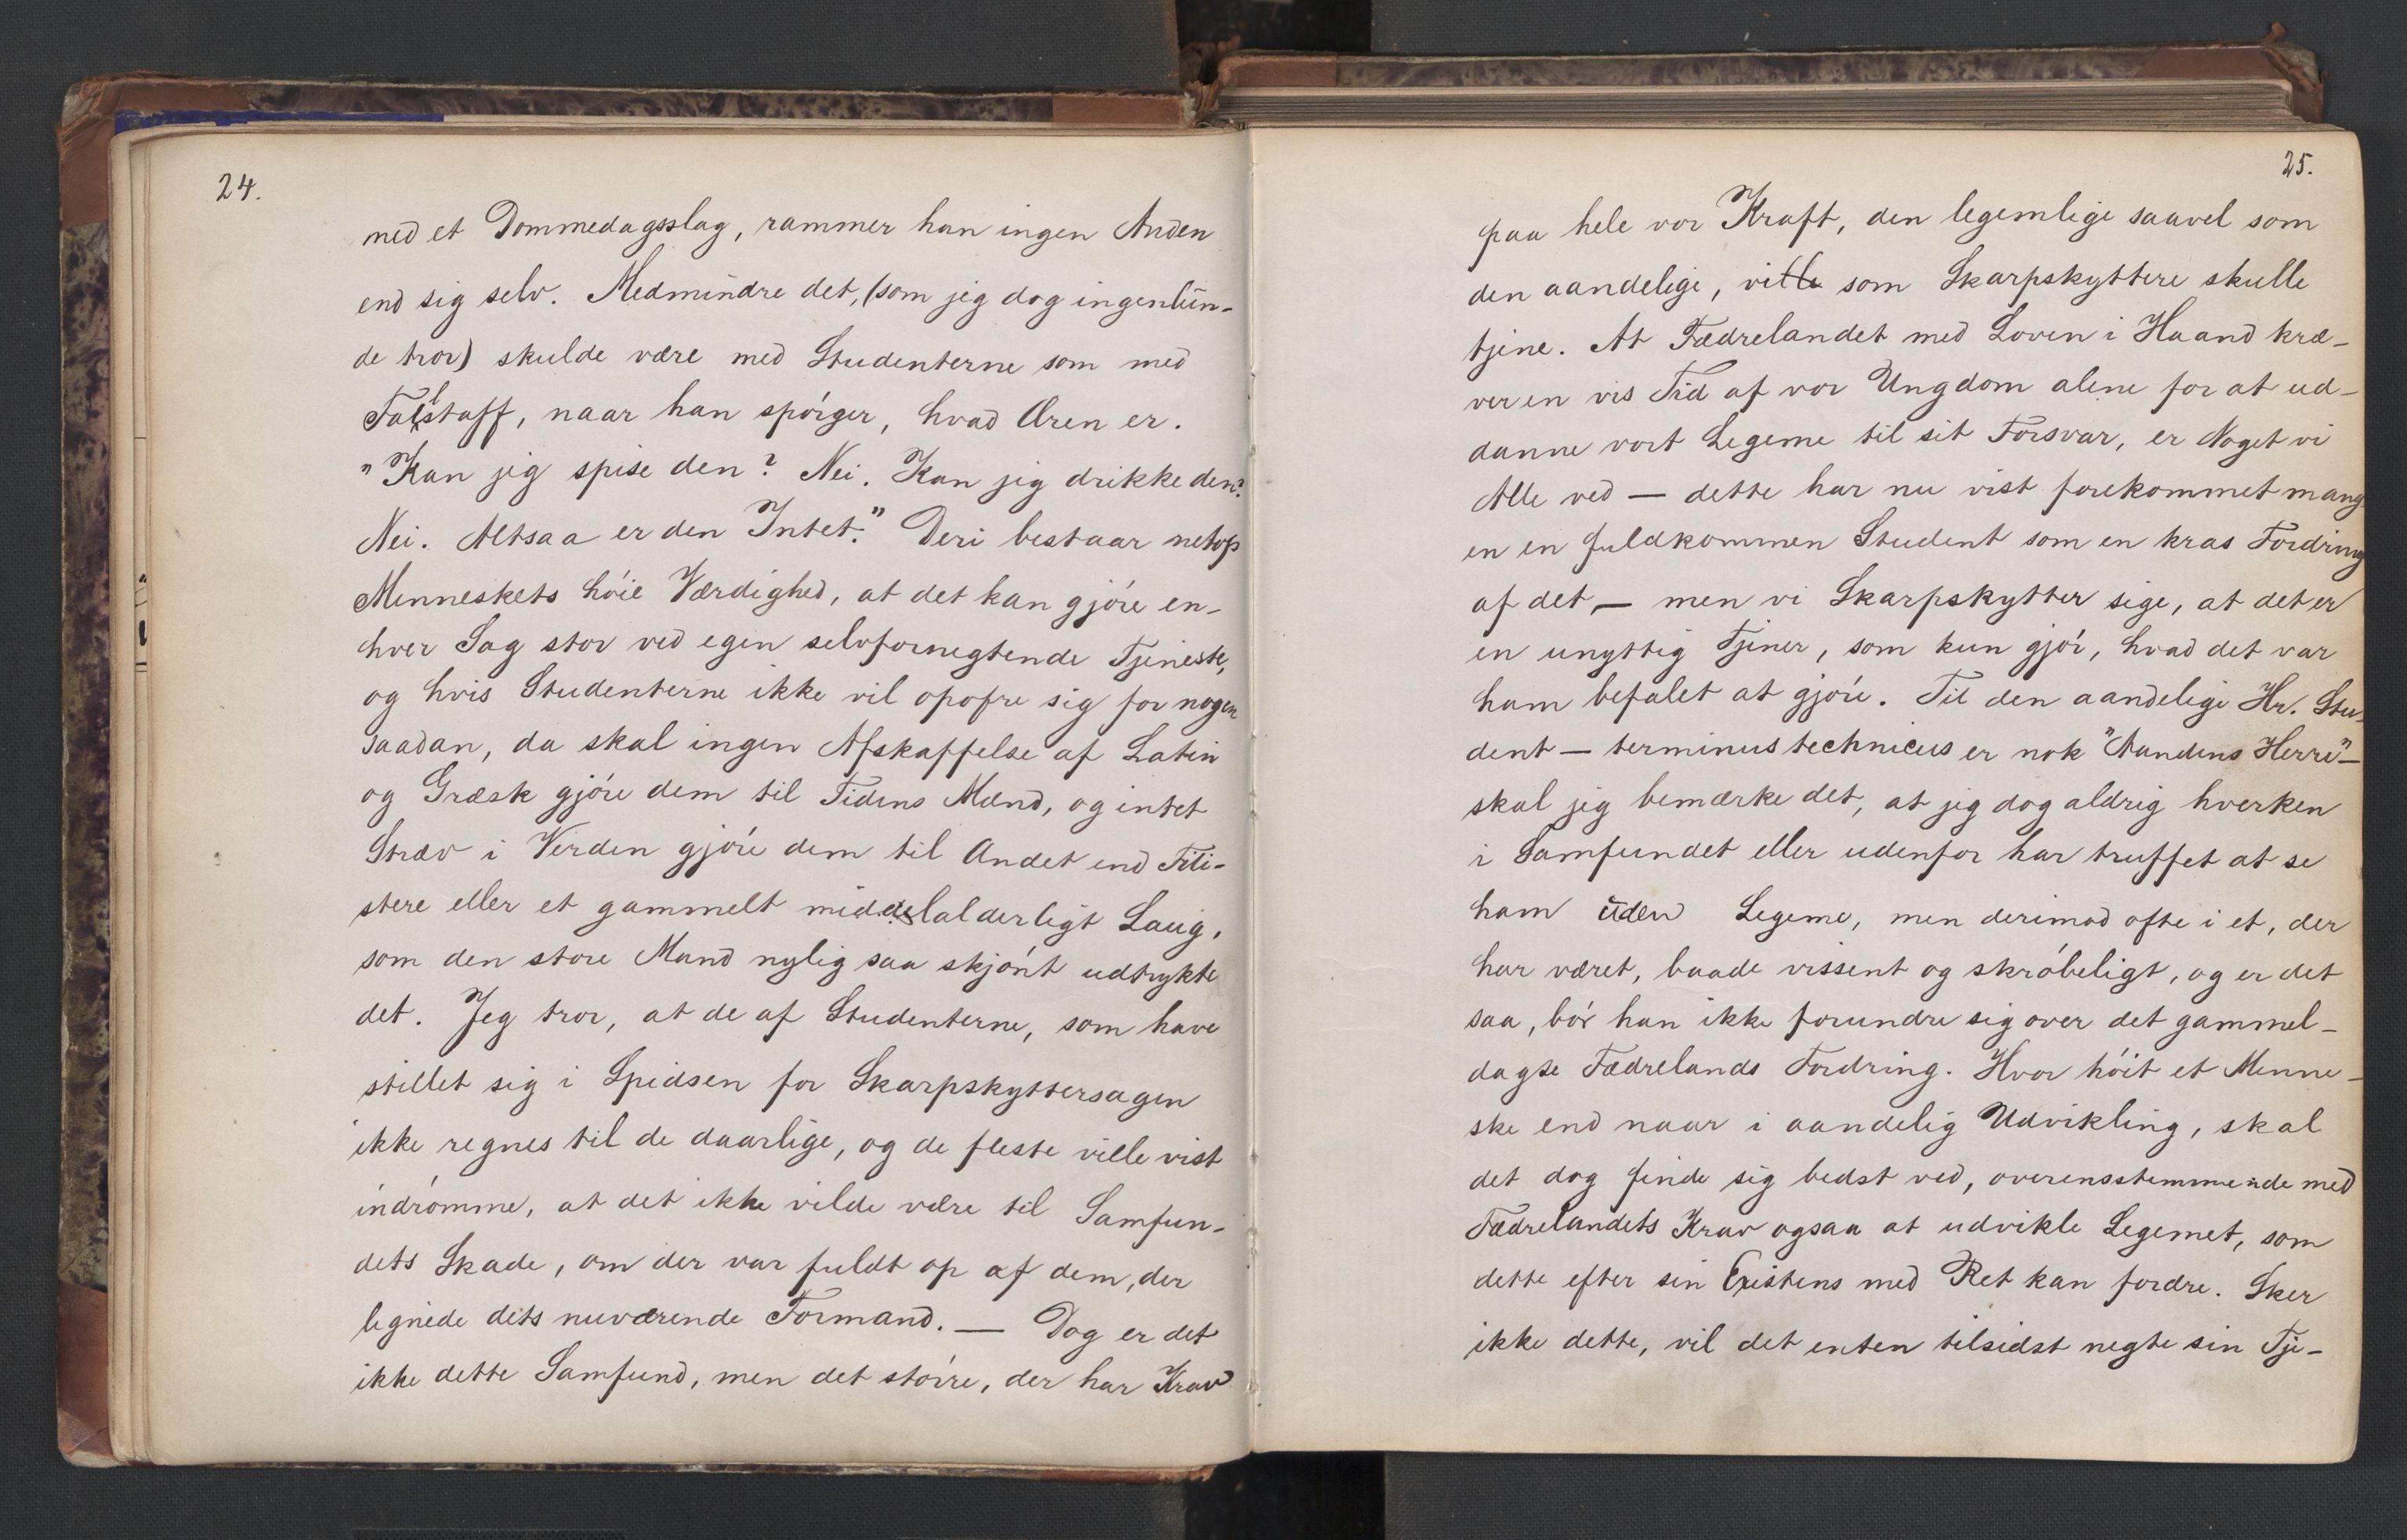 24.
med et Dommedagsslag, rammer han ingen Anden
end sig selv. Medmindre det, (som jeg dog ingenlun-
de tror) skulde være med Studenterne som med
Falstaff, naar han spórger, hvad Æren er.
"Kan jeg spise den? Nei. Kan jeg drikke den?
Nei. Altsaa er den Intet." Deri bestaar netop
Menneskets hóie Værdighed, at det kan gjóre en-
hver Sag stor ved egen selvfornegtende Tjeneste,
og hvis Studenterne ikke vil opofre sig for nogen
saadan, da skal ingen Afskaffelse af Latin
og Græsk gjóre dem til Tidens Mænd, og intet
Stræv i Verden gjóre dem til Andet end Fili-
stere eller et gammelt middelalderligt Laug,
som den store Mand nylig saa skjónt udtrykte
det. Jeg tror, at de af Studenterne, som have
stillet sig i Spidsen for Skarpskyttersagen
ikke regnes til de daarlige, og de fleste ville vist
indrómme, at det ikke vilde være til Samfun-
dets Skade, om der var fuldt op af dem, der
lignede dets nuværende Formand. — Dog er det
ikke dette Samfund, men det stórre, der har Krav
25.
paa hele vor Kraft, den legemlige saavel som
den aandelige, vi som Skarpskyttere skulle
tjene. At Fædrelandet med Loven i Haand kræ-
ver en vis Tid af vor Ungdom alene for at ud-
danne vort Legeme til sit Forsvar, er Noget vi
Alle ved — dette har nu vist forekommet mang
en en fuldkommen Student som en kras Fordring
af det, — men vi Skarpskytter sige, at det er
en unyttig Tjener, som kun gjór, hvad det var
ham befalet at gjóre. Til den aandelige Hr. Stu-
dent — terminus technicus er nok "Aandens Herre" —
skal jeg bemærke det, at jeg dog aldrig hverken
i Samfundet eller udenfor har truffet at se
ham uden Legeme, men derimod ofte i et, der
har været, baade vissent og skróbeligt, og er det
saa, bór han ikke forundre sig over det gammel-
dagse Fædrelands Fordring. Hvor hóit et Menne-
ske end naar i aandelig Udvikling, skal
det dog finde sig bedst ved, overensstemmende med
Fædrelandets Krav ogsaa at udvikle Legemet, som
dette efter sin Existens med Ret kan fordre. Sker
ikke dette, vil det enten tilsidst negte sin Tje-